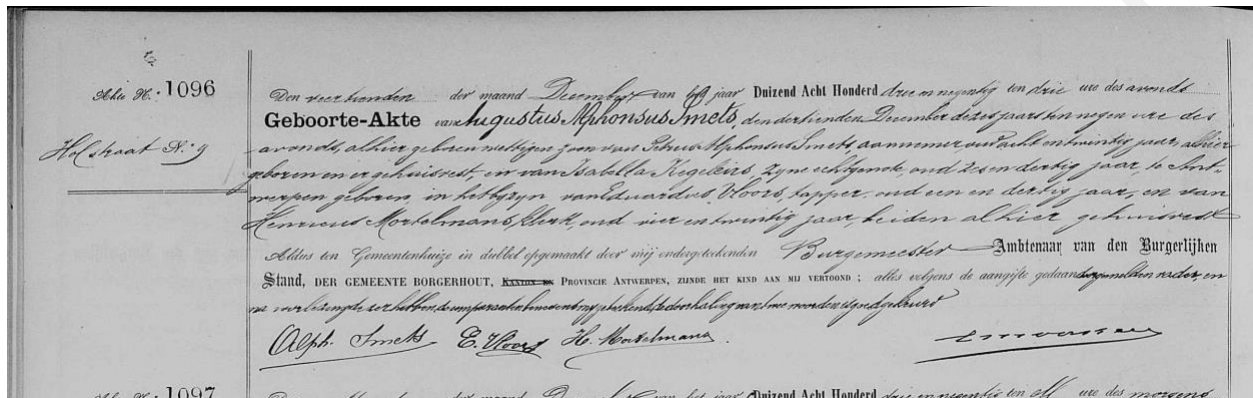 Akte N. 1096
Holstraat N. 9
Den veertienden der maand December van het jaar Duizend Acht Honderd drie en negentig ten drie ure des avonds
Geboorte-Akte van Augustus Alphonsus Smets, den dertienden December dezes jaars ten negen ure des
avonds, alhier geboren wettigen zoon van Petrus Alphonsus Smets aannemer oud acht en twintig jaar, alhier
geboren en er gehuisvest, en van Isabella Kegeleirs, zyne echtgenote, oud zes en dertig jaar, te Ant-
werpen geboren, in het byzyn van Eduardus Vloors, tapper, oud een en dertig jaar, en van
Henricus Mortelmans, klerk, oud vier en twintig jaar, beiden alhier gehuisvest
Aldus ten Gemeentenhuize in dubbel opgemaakt door mij ondergeteekenden Burgemeester Ambtenaar van den Burgerlijken
Stand, DER GEMEENTE BORGERHOUT, KANTON EN PROVINCIE ANTWERPEN, ZIJNDE HET KIND AAN MIJ VERTOOND ; alles volgens de aangifte gedaan door gemelden vader, en
na voorlezing de comparanten benevens my getekend, de doorhaling van twee woorden is goedgekeurd
Alph. Smets E. Vloors H. Mortelmans
Akte N. 1097
der maand December van het jaar Duizend Acht Honderd drie en negentig ten elf ure des morgens